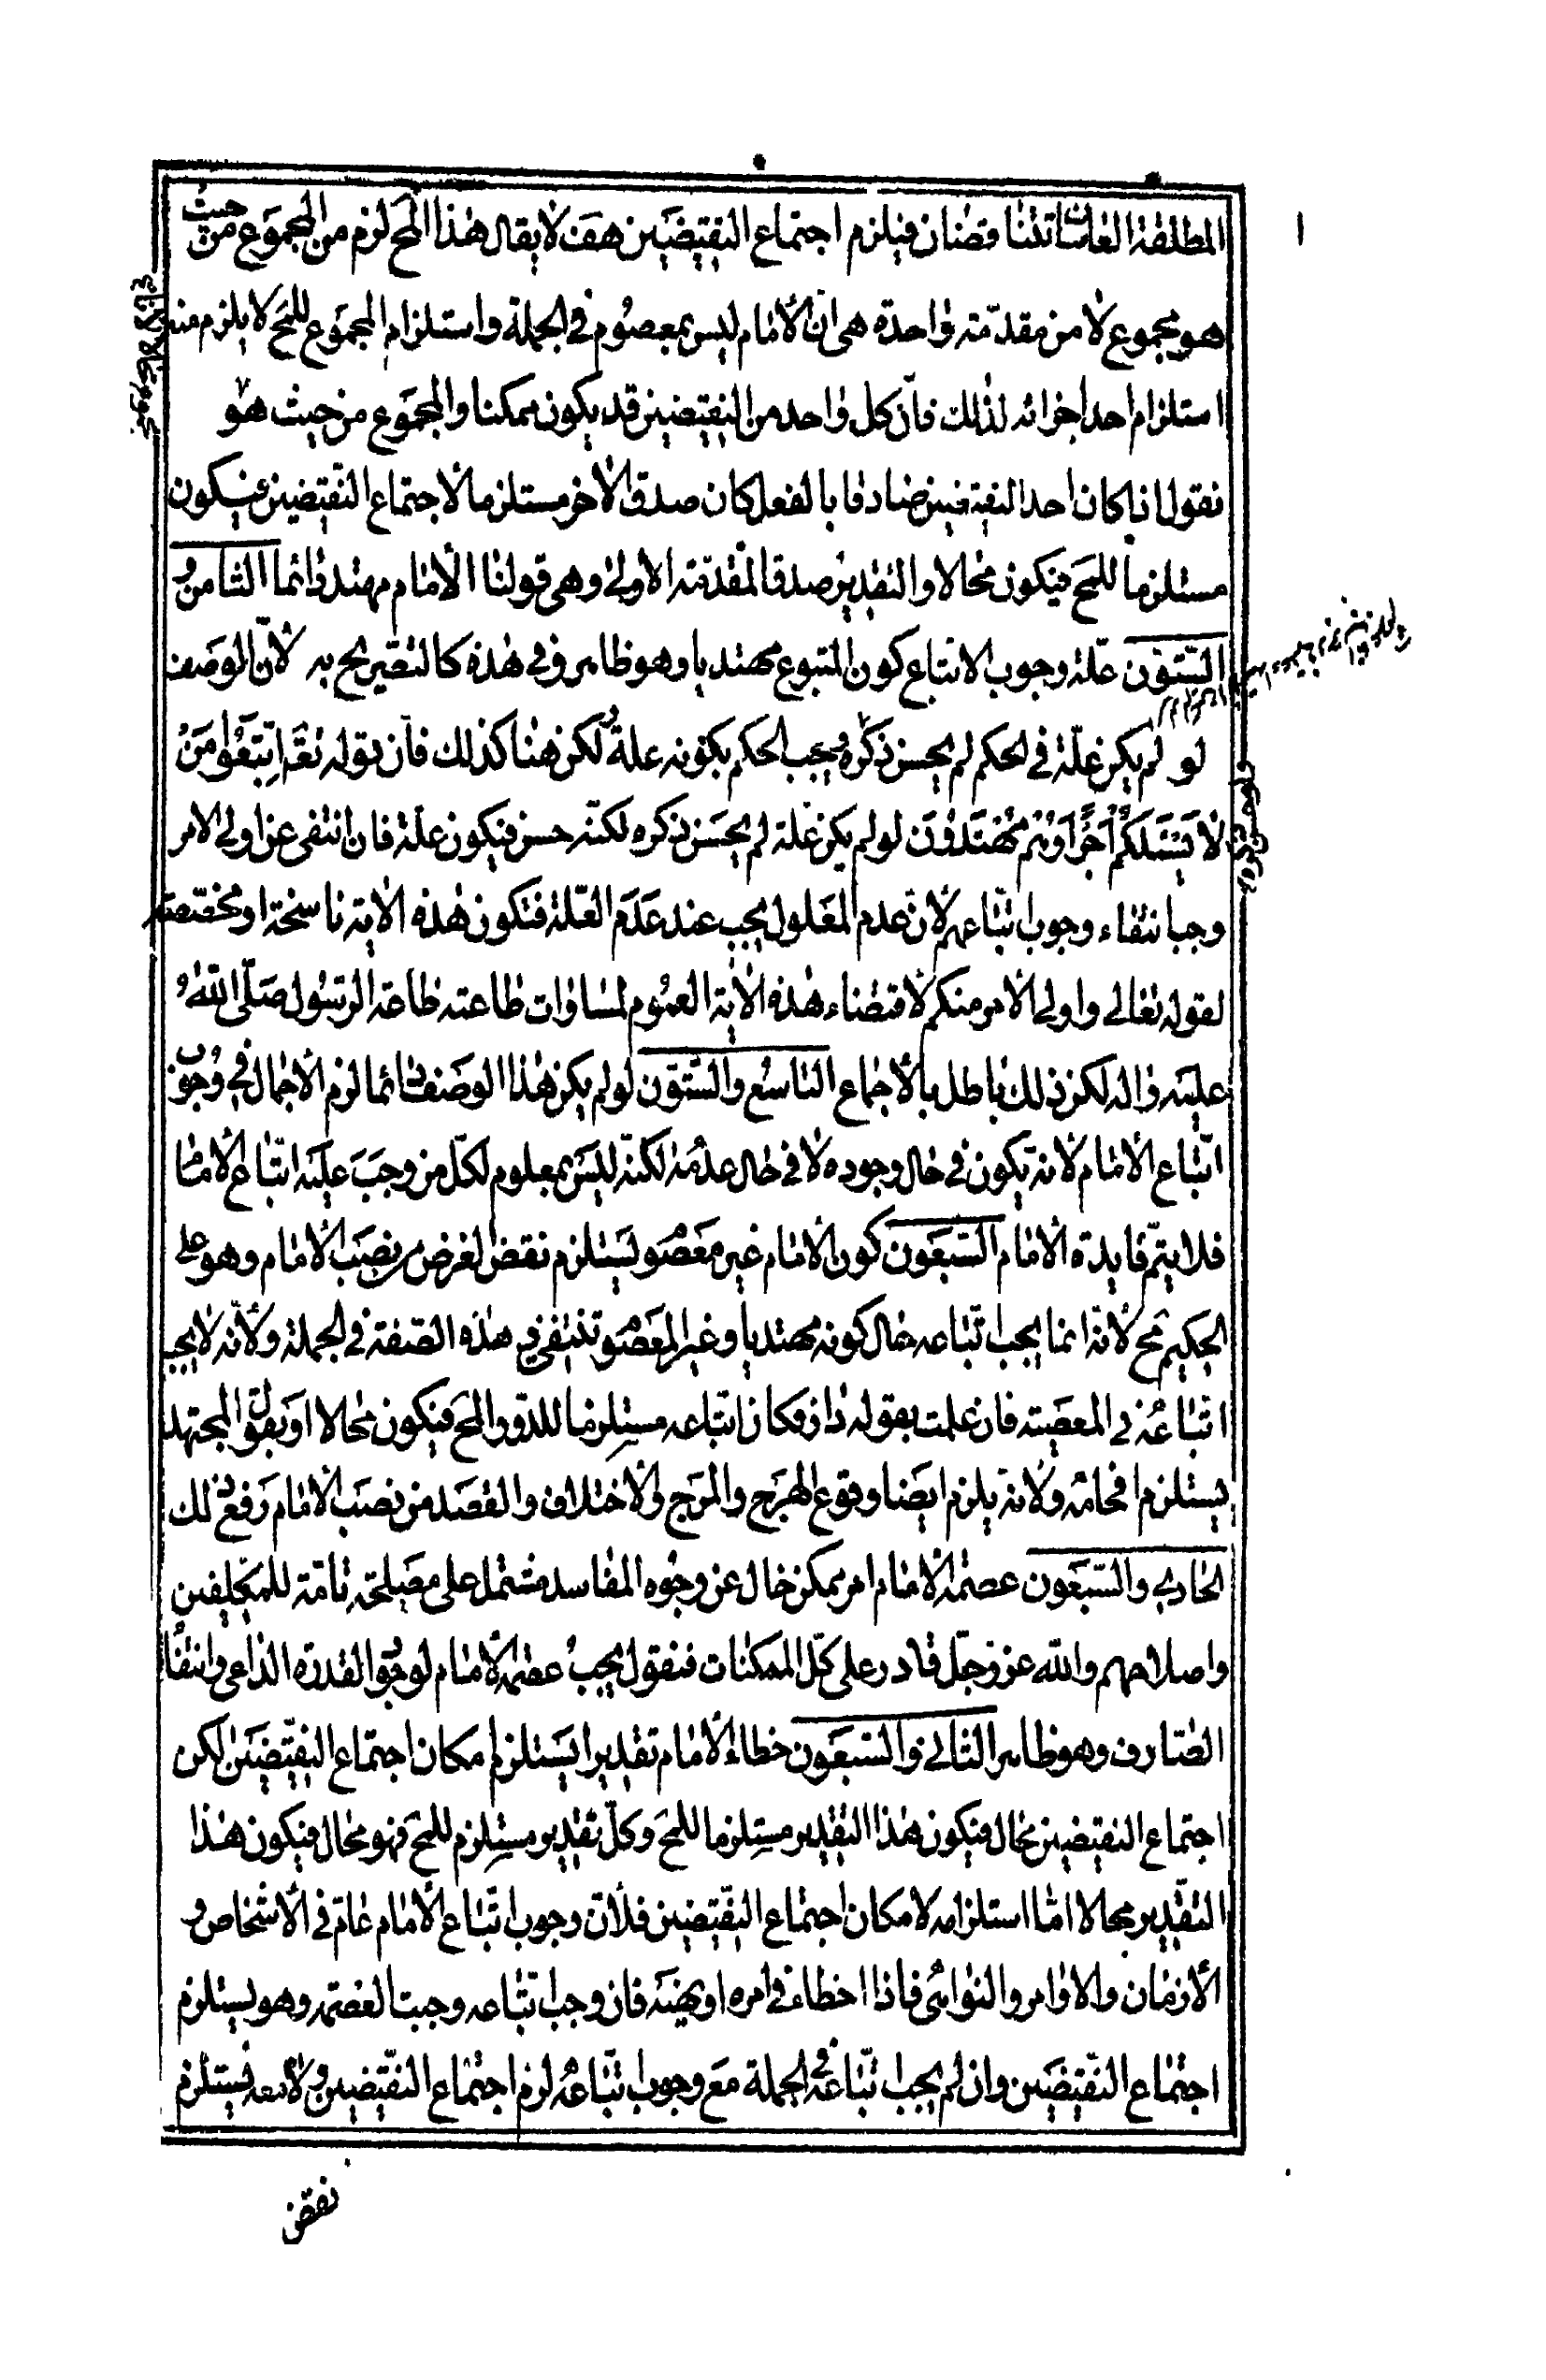 المطلقة العامتان تتناقضان فيلزم اجتماع النقيضين هف لا يقال هذا المح لزم من المجموع من حيث
هو مجموع لا من مقدمة واحدة هى ان الامام ليس بمعصوم فى الجملة واستلزام المجموع للمح لا يلزم منه
استلزام احد اجزائه لذلك فان كل واحد من النقيضين قد يكون ممكنا والمجموع من حيث هو
نقول اذا كان احد النقيضين صادقا بالفعل كان صدق الاخر مستلزما لاجتماع النقيضين فيكون
مستلزما للمح فيكون محالا والتقدير صدق المقدمة الاولى وهى قولنا الامام مهتد دائما الثامن و
الستون علة وجوب الاتباع كون المتبوع مهتديا وهو ظاهر وفى هذه كالتصريح به لان الوصف
لو لم يكن علة فى الحكم لم يحسن ذكره ويجب الحكم بكونه علة لكن هنا كذلك فان قوله تعه اتبعوا من
لا يسئلكم اجرا وهم مهتدون لو لم يكن علة لم يحسن ذكره لكنه حسن فيكون علة فان انتفى عن اولى الامر
وجب انتفاء وجوب اتباعهم لان عدم المعلول يجب عند عدم العلة فتكون هذه الاية ناسخة او مخصصة
لقوله تعالى واولى الامر منكم لاقتضاء هذه الاية العموم لمساوات طاعته طاعة الرسول صلى الله
عليه واله لكن ذلك باطل بالاجماع التاسع والستون لو لم يكن هذا الوصف دائما لزم الاجمال فى وجوب
اتباع الامام لانه يكون فى حال وجوده لا فى حال عدمه لكنه ليس بمعلوم لكل من وجب عليه اتباع الامام
فلا يتم فايدة الامام السبعون كون الامام غير معصو يستلزم نقض الغرض من نصب الامام وهو على
الحكيم مح لانه انما يجب اتباعه حال كونه مهتديا وغير المعصو تنتفى فيه هذه الصفة فى الجملة ولانه لا يجب
اتباعه فى المعصية فان علمت بقوله دار فكان اتباعه مستلزما للدور المح فيكون محالا او بقول المجتهد
يستلزم افحامه ولانه يلزم ايضا وقوع الهرج والمرج والاختلاف والقصد من نصب الامام رفع ذلك
الحادى والسبعون عصمة الامام امر ممكن خال عن وجوه المفاسد مشتمل على مصلحة تامة للمكلفين
واصلاحهم والله عز وجل قادر على كل الممكنات فنقول يجب عصمة الامام لوجود القدرة الداعى وانتفاء
الصارف وهو ظاهر الثانى والسبعون خطاء الامام تقديرا يستلزم امكان اجتماع النقيضين لكن
اجتماع النقيضين محال فيكون هذا التقدير مستلزما للمح وكل تقدير مستلزم للمح فهو محال فيكون هذا
التقدير محالا اما استلزامه لامكان اجتماع النقيضين فلان وجوب اتباع الامام عام فى الاشخاص و
الازمان والاوامر والنواهى فاذا اخطاء فى امره او نهيه فان وجب اتباعه وجبت المعصية وهو يستلزم
اجتماع النقيضين وان لم يجب اتباعه فى الجملة مع وجوب اتباعه لزم اجتماع النقيضين ولانه فيستلزم
نقض